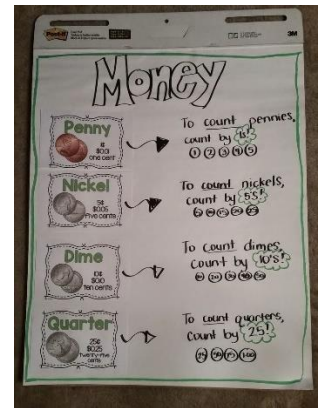 Post-it
3M
Money
Penny
1¢
$0.01
one cent
To count pennies,
count by 1's!
1 2 3 4 5
Nickel
5¢
$0.05
Five cents
To count nickels,
count by 5's!
5 10 15 20 25
Dime
10¢
$0.10
ten cents
To count dimes,
count by 10's!
10 20 30 40 50
Quarter
25¢
$0.25
Twenty-five
cents
To count quarters,
count by 25!
25 50 75 100